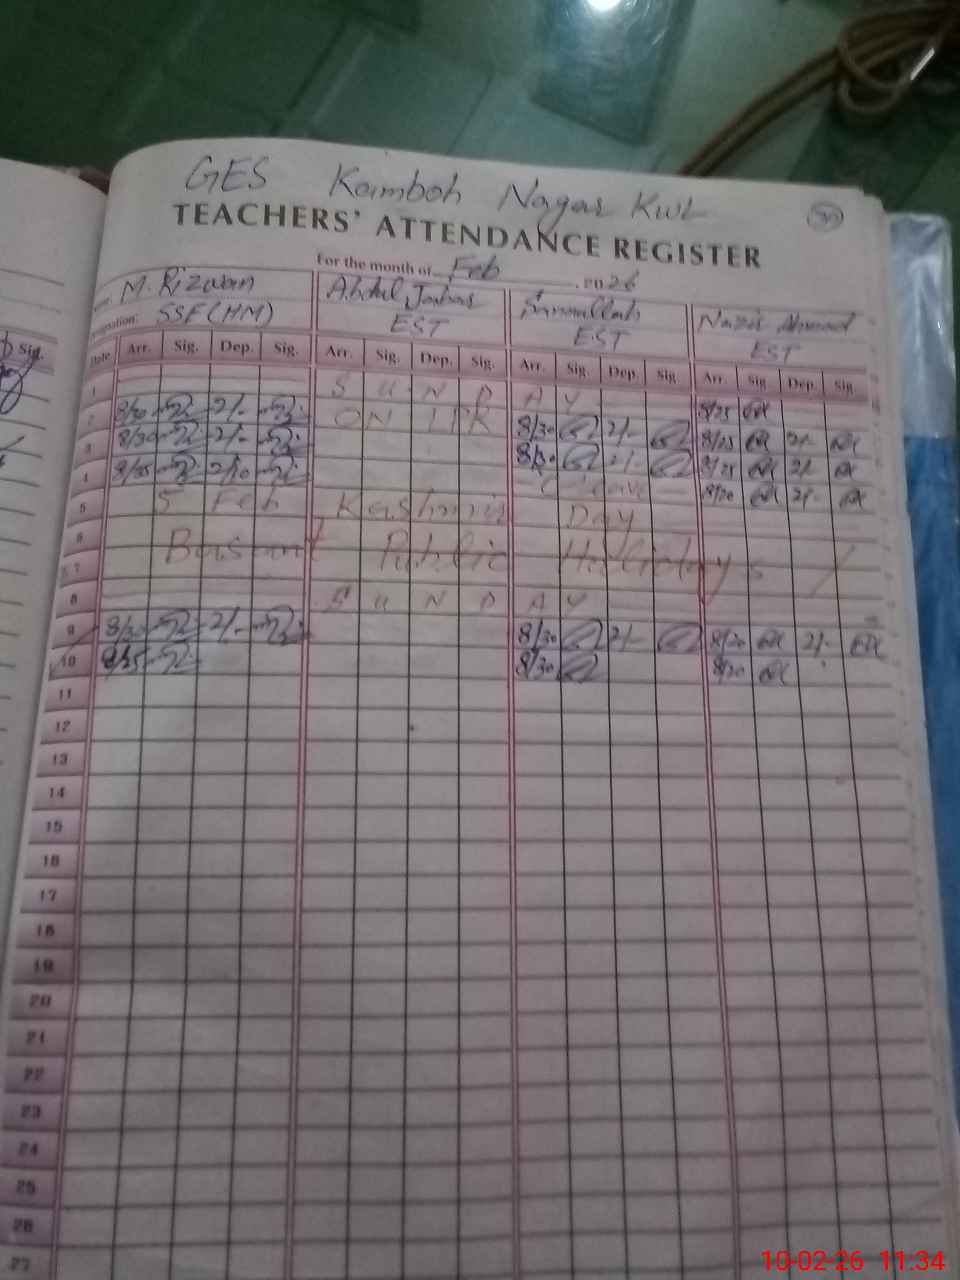 GES Kamboh Nagar KWL
TEACHERS' ATTENDANCE REGISTER
For the month of Feb 2026
M. Rizwan Abdul Jabbar Nazir Ahmad
SSE (HM) EST EST EST
Date Arr. Sig. Dep. Sig. Arr. Sig. Dep. Sig. Arr. Sig. Dep. Sig. Arr. Sig. Dep. Sig.
1 SUNDAY
2 8/30 2/- ON LPR 8/30 2/- 8/25
3 8/30 2/- 8/30 2/- 8/25 2/-
4 8/25 2/10 C leave 8/25 2/-
5 5 Feb Kashmir Day 8/20 2/-
6 Basant Public Holidays
7
8 SUNDAY
9 8/30 2/- 8/30 2/- 8/20 2/-
10 8/25 8/30 8/20
11
12
13
14
15
16
17
18
19
20
21
22
23
24
25
26
27
10-02-26 11:34